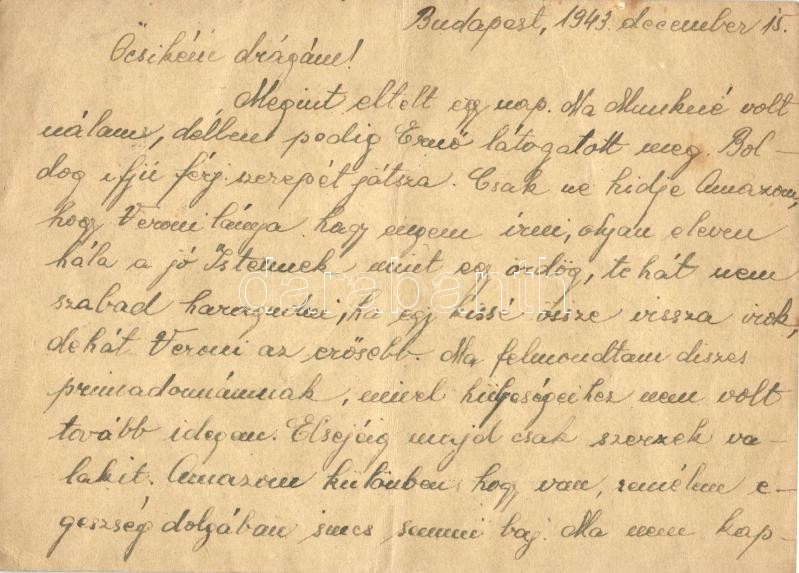 Budapest, 1943. december 15.
Öcsikém drágám!
Megint eltelt egy nap. Ma Munkné volt
nálam, délben pedig Ernő látogatott meg. Bol-
dog ifjú férj szerepét játsza. Csak ne hidje Anyazom,
hogy Veroni lánya hagy engem irni, olyan eleven
hála a jó Istennek mint egy ördög, tehát nem
szabad haragudni, ha egy kissé össze vissza irok,
dehát Veroni az erősebb. Ma felmondtam diszes
primadonnámnak, mivel hülyeségeihez nem volt
tovább idegem. Elsejéig majd csak szerzek va-
lakit. külömben hogy van, remélem e-
gészség dolgában sincs semmi baj. Ma nem kap-
darabanth